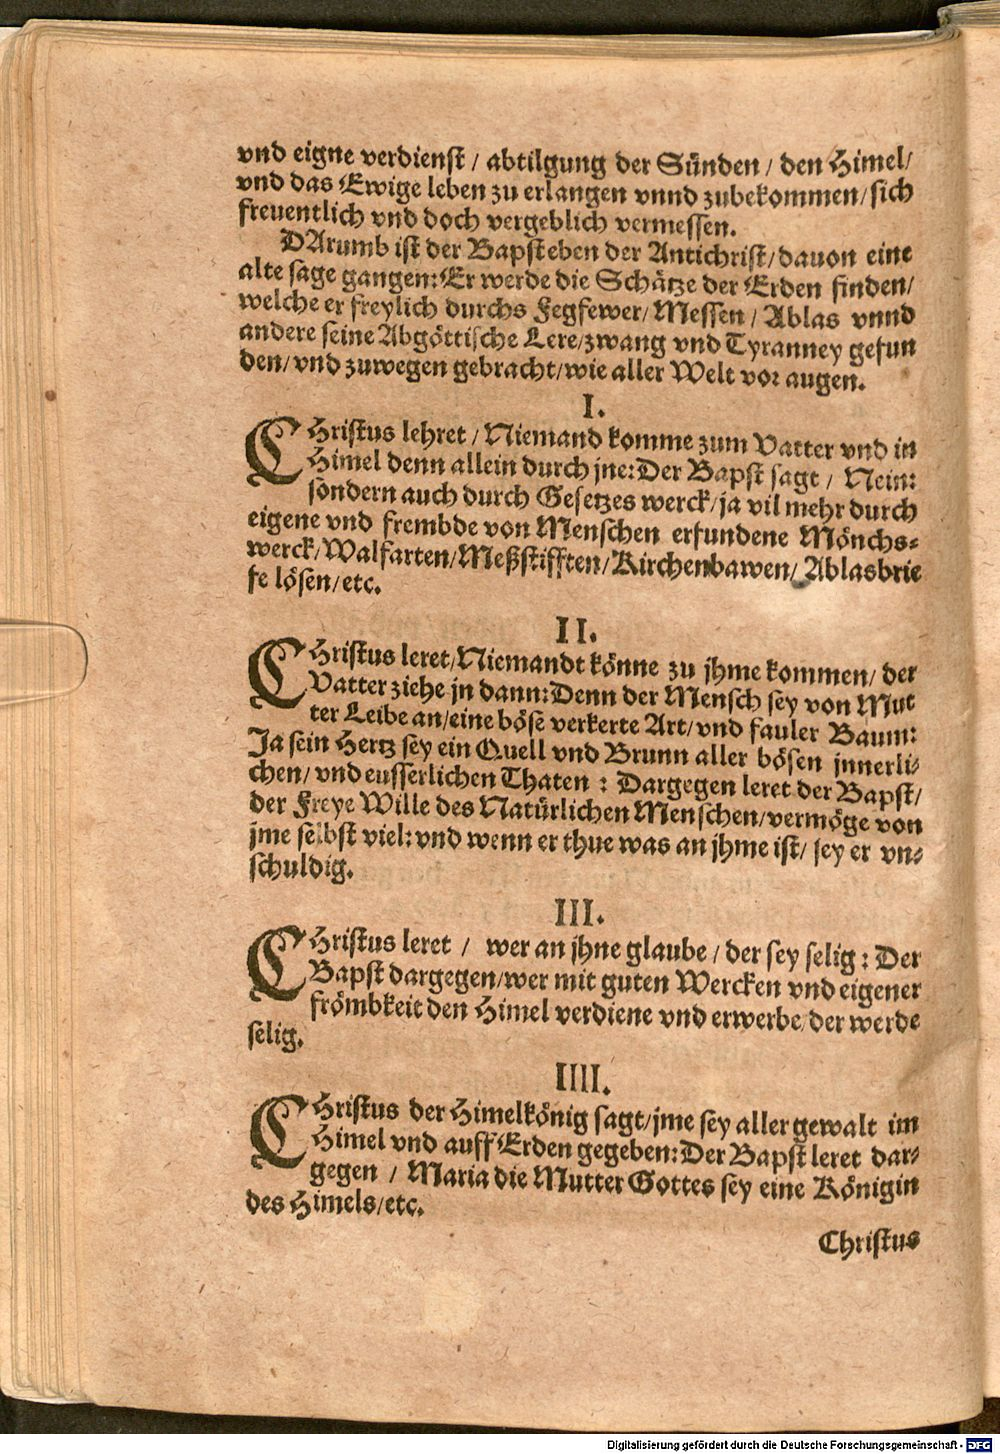 vnd eigne verdienst / abtilgung der Sünden / den Himel/
vnd das Ewige leben zu erlangen vnnd zubekommen/ sich
freuentlich vnd doch vergeblich vermessen.
DArumb ist der Bapst eben der Antichrist/ dauon eine
alte sage gangen: Er werde die Schätze der Erden finden/
welche er freylich durchs Fegfewer/ Messen / Ablas vnnd
andere seine Abgöttische Lere/ zwang vnd Tyranney gefun
den/ vnd zuwegen gebracht/ wie aller Welt vor augen.
I.
CHristus lehret / Niemand komme zum Vatter vnd in
Himel denn allein durch jne: Der Bapst sagt / Nein:
sondern auch durch Gesetzes werck/ ja vil mehr durch
eigene vnd frembde von Menschen erfundene Mönchs-
werck/ Walfarten/ Meßstifften/ Kirchenbawen/ Ablasbrie
fe lösen/ etc.
II.
CHristus leret/ Niemandt könne zu jhme kommen/ der
Vatter ziehe jn dann: Denn der Mensch sey von Mut
ter Leibe an/ eine böse verkerte Art/ vnd fauler Baum:
Ja sein Hertz sey ein Quell vnd Brunn aller bösen jnnerli-
chen/ vnd eusserlichen Thaten : Dargegen leret der Bapst/
der Freye Wille des Natürlichen Menschen/ vermöge von
jme selbst viel: vnd wenn er thue was an jhme ist/ sey er vn-
schuldig.
III.
CHristus leret / wer an jhne glaube / der sey selig : Der
Bapst dargegen/ wer mit guten Wercken vnd eigener
frömbkeit den Himel verdiene vnd erwerbe/ der werde
selig.
IIII.
CHristus der Himelkönig sagt/ jme sey aller gewalt im
Himel vnd auff Erden gegeben: Der Bapst leret dar-
gegen / Maria die Mutter Gottes sey eine Königin
des Himels/ etc.
Christus
Digitalisierung gefördert durch die Deutsche Forschungsgemeinschaft - DFG